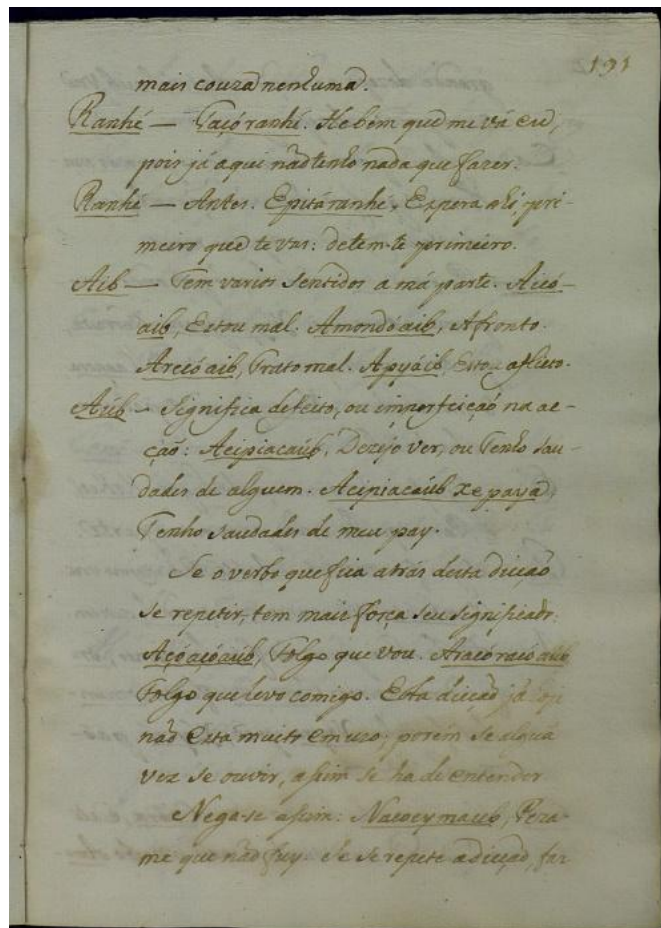 191
mais couza nenhuma.
Ranhé — Taçó ranhé. Hé bem que me vá eu,
pois já aqui não tenho nada que fazer.
Ranhé — Antes. Epitáranhé, Espera ahi, pri-
meiro que te vas: detem-te primeiro.
Aib — Tem varios sentidos a má parte. Aicó-
aib, Estou mal. Amondóaib, Afronto.
Areióaib, Trato mal. Apyáib, Estou aflicto.
Aúb — Significa defeito, ou imperfeiçaõ na ac-
çaõ: Acipiacaúb, Dezejo ver, ou Tenho sau-
dades de alguem. Acipiacaúb xe paya,
Tenho saudades de meu pay.
Se o verbo que fica atrás desta dicçaõ
se repetir, tem mais força seu significado:
Açóaçóaúb, Folgo que vou. Aracóracóaúb
Folgo que levo comigo. Esta dicçaõ já hoje
naõ esta muito em uzo; porém se algũa
vez se ouvir, assim se ha de entender
Nega-se assim: Naçoeymaub, Peza-
me que naõ fuy. Se se repete a dicçaõ, faz